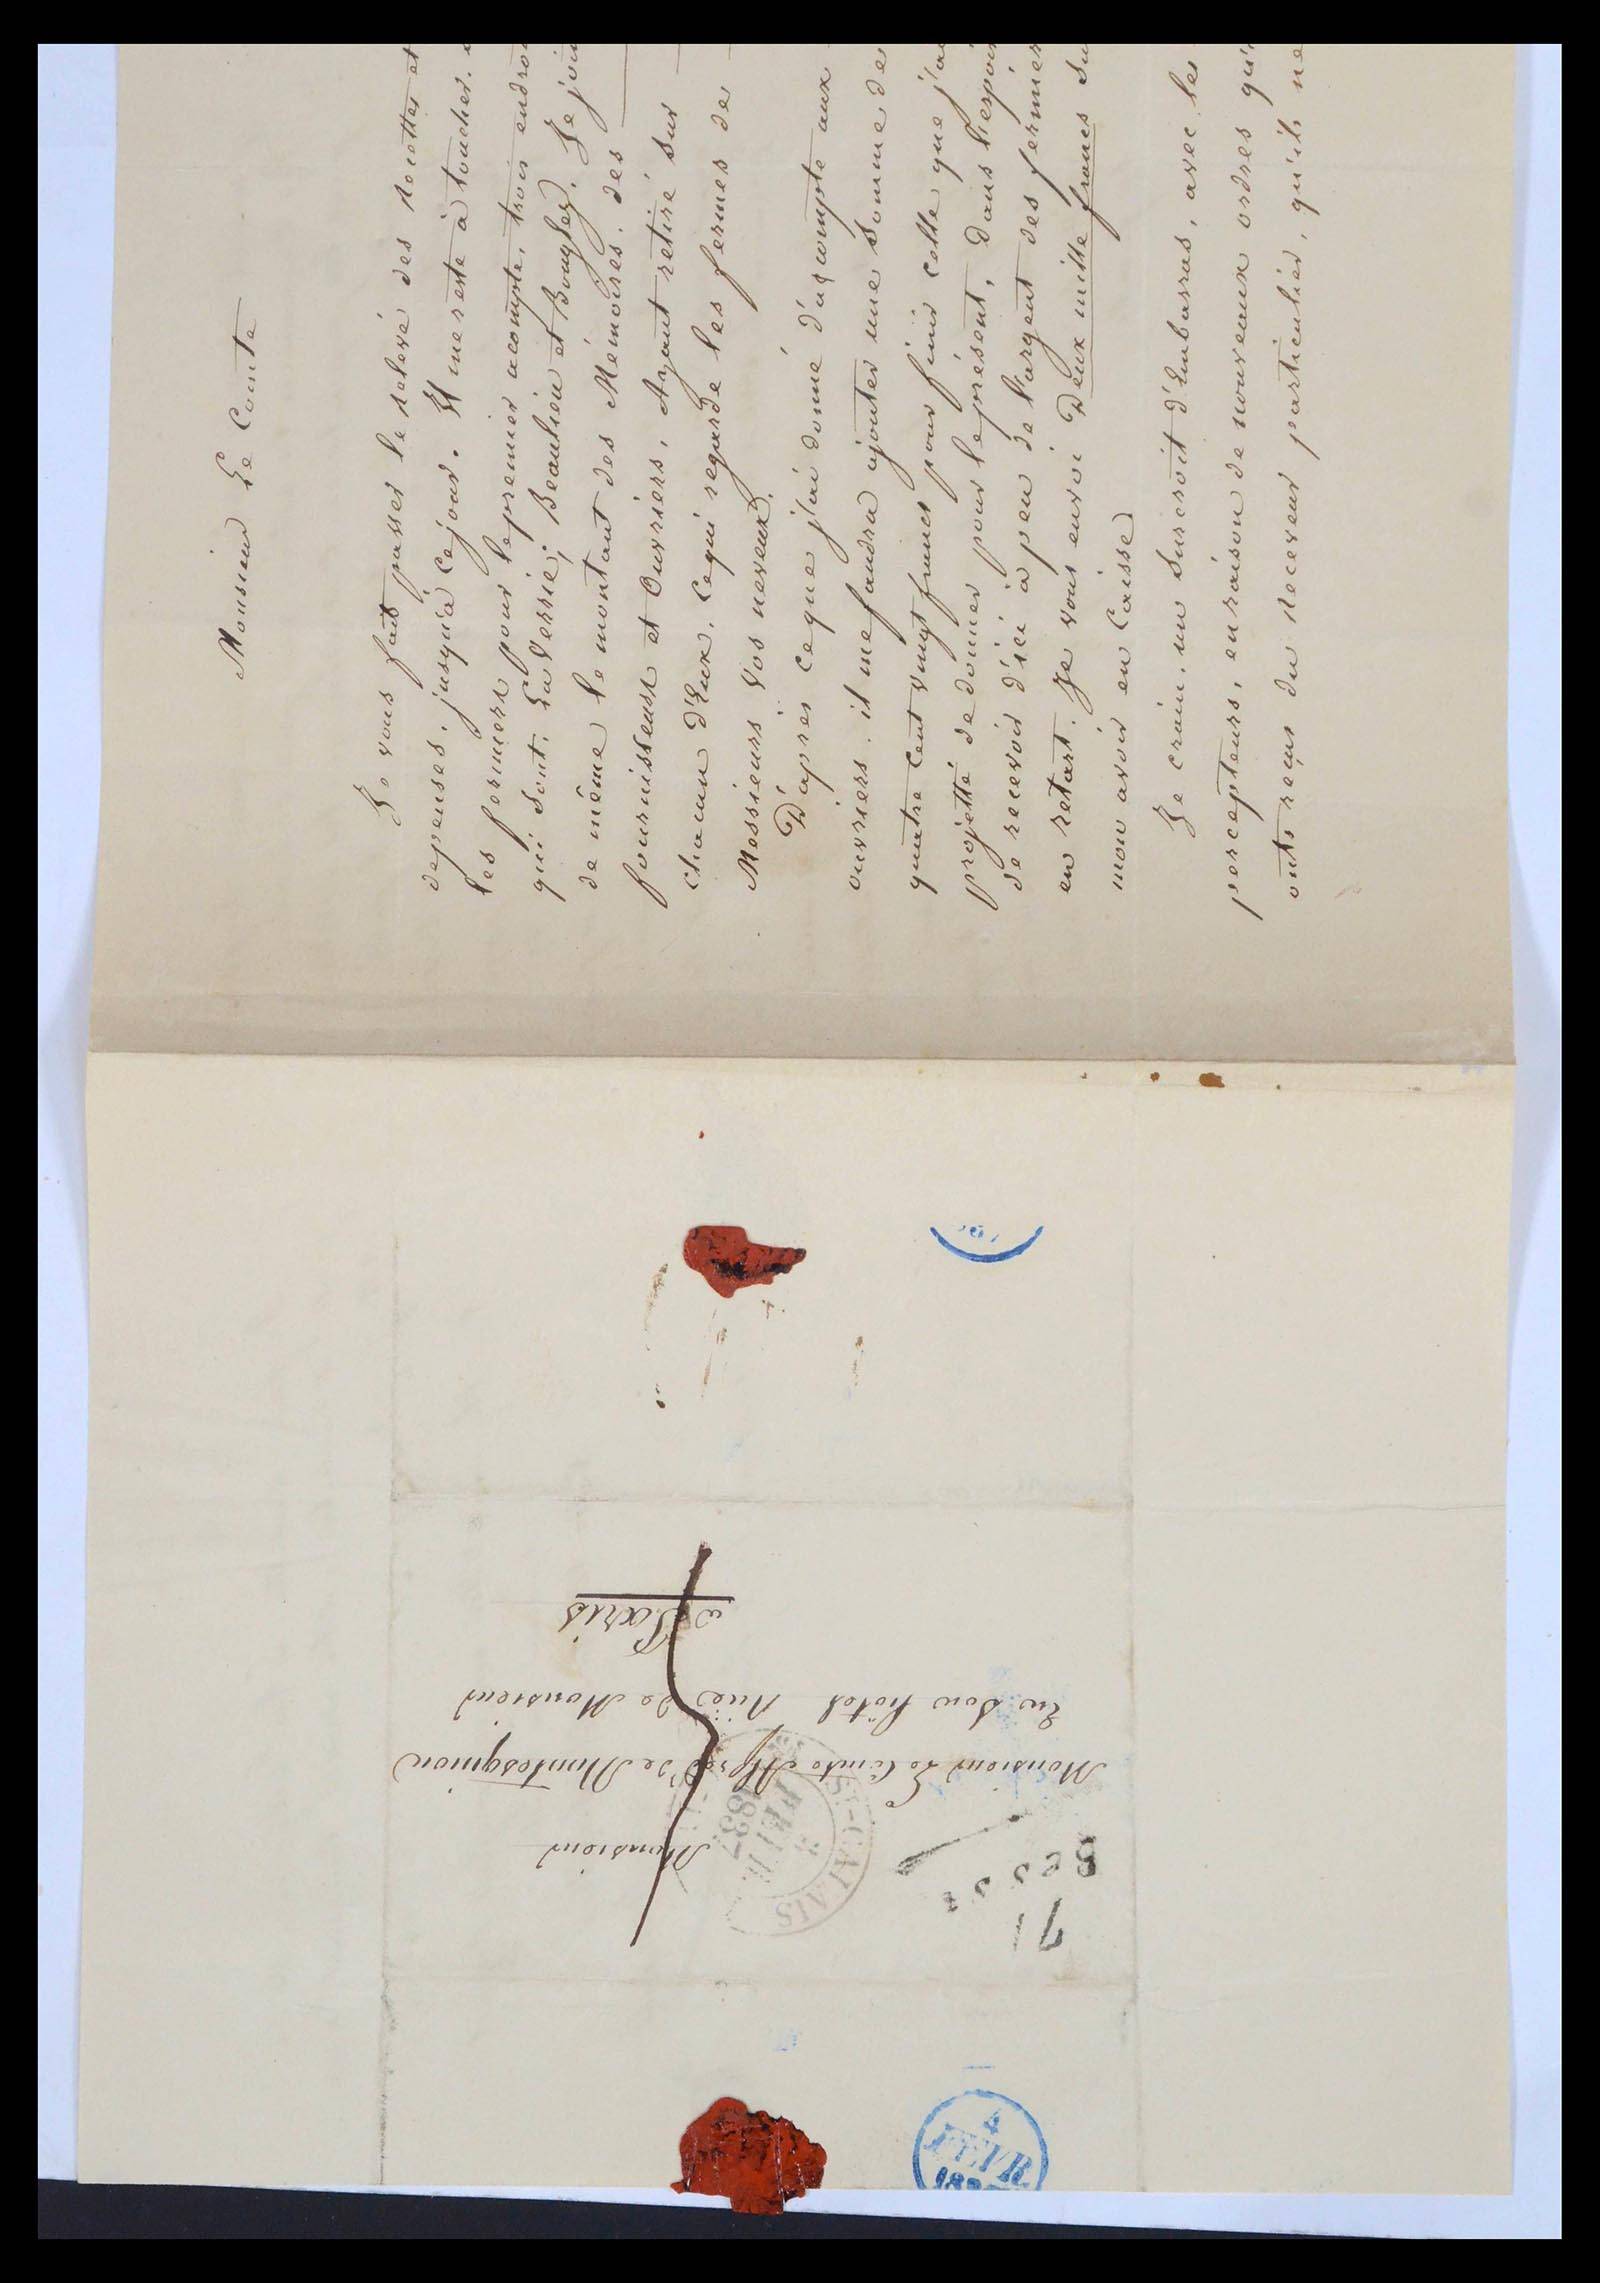 Monsieur Le Comte
Je vous fait passer le relevé des recettes et
depenses. jusqu'à cejour. Il me reste à toucher.
les fermiers pour lepremier acompte, trois endroi
qui sont. La Verrie; Beaulieu et Bougler. Je join
de même le montant des Mémoires. des
fournisseurs et Ouvriers, Ayant retiré sur
chacun d'Eux. cequi regarde les fermes de
Messieurs vos neveux.
D'après ceque j'ai donné d'acompte aux
ouvriers. il mefaudra ajouter une somme de
quatre cent vingt francs pour finir celle que j'a
projetté de donner pour leprésent, dans l'espoir
de recevoir d'ici à peu de l'argent des fermiers
en retart. Je vous envoi Deux mille francs su
mon avoir en Caisse
Je crain. un surcroit d'Embarras, avec les
percepteurs, enraison de nouveaux ordres qu'i
onts reçus du receveur particulier, qu'ils ne
Monsieur
Monsieur Le Comte Alfred de Montesquiou
En son hôtel Rue de Monsieur
à Paris
ST-CALAIS
3
FEVR.
1837
71
4
FEVR.